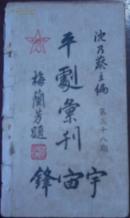 沈乃葵主编
第三十八期
平劇彙刊
梅蘭芳題
宇宙鋒